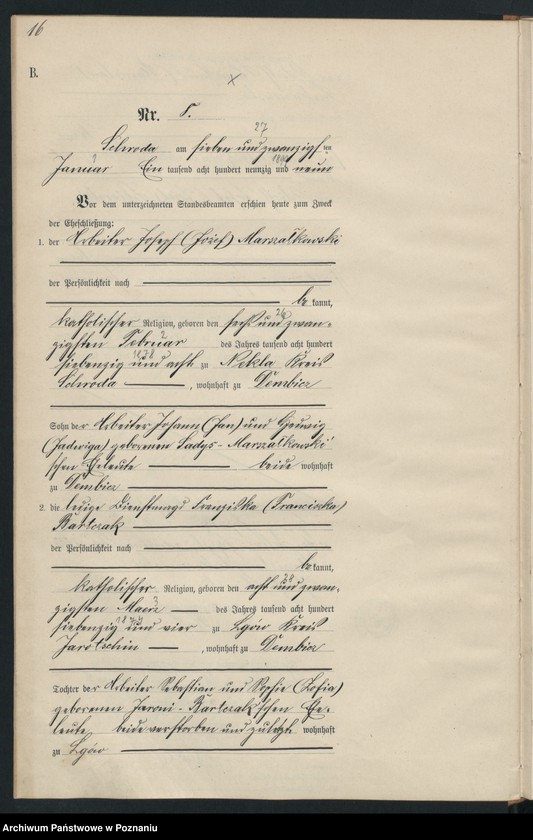 16
B.
x
Nr. 5.
27
Schroda am sieben und zwanzigsten
Januar Ein tausend acht hundert neunzig und neun
Vor dem unterzeichneten Standesbeamten erschien heute zum Zweck
der Eheschließung:
1. der Arbeiter Joseph (Józef) Marszalkowski
der Persönlichkeit nach
be kannt,
katholischer Religion, geboren den sechs und zwan-
26
zigsten Februar des Jahres tausend acht hundert
1878
siebenzig und acht zu Nekla Kreis
Schroda, wohnhaft zu Dembicz
Sohn der Arbeiter Johann (Jan) und Hedwig
(Jadwiga) geborenen Ladys-Marszalkowski'
schen Eheleute beide wohnhaft
zu Dembicz
2. die ledige Dienstmagd Franziska (Franciszka)
Bartczak
der Persönlichkeit nach
be kannt,
katholischer Religion, geboren den acht und zwan-
28
zigsten Maerz des Jahres tausend acht hundert
3
1874
siebenzig und vier zu Lgów Kreis
Jarotschin, wohnhaft zu Dembicz
Tochter der Arbeiter Sebastian und Sophie (Zofia)
geborenen Jaroni-Bartczak'schen Ehe-
leute beide verstorben und zuletzt wohnhaft
zu Lgów
Archiwum Państwowe w Poznaniu